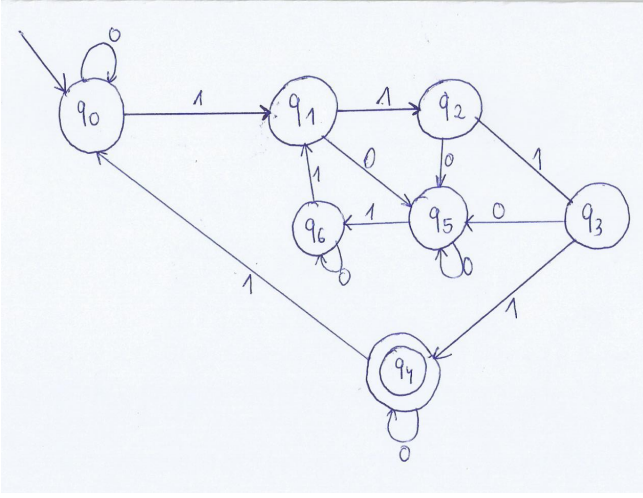 0
q0 1 q1 1 q2
0 0 1
1
q6 1 q5 0 q3
0 0
1 1
q4
0